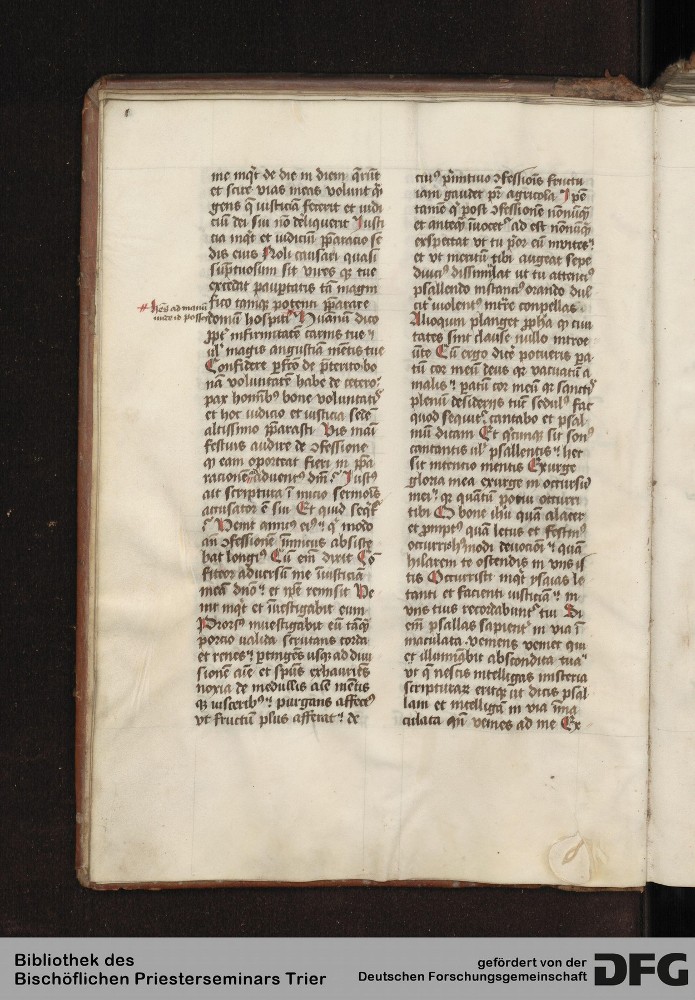 me inq̄t de die in diem q̄rūt
et scire vias meas volunt q̄i
gens q̄ iusticiā fecerit et iudi
ciū dei sui nō dēliquerit Justi
cia inqt et iudiciū p̄paracio se
dis eius Noli causari quasi
sūptuosum sit vires q̄ tue
excedat paup̄tatis tā magni
fico tamq̄ potenti p̄parare
domū hospitī Quanū dico
# hēs ad manū
unde id possit
infirmitatē carnis tue
ul' magis angustiā mētis tue
Confidere p̄fcō de p̄terito bo
nā voluntatē habe de cetero
pax hom̄ibus bone voluntatis
et hoc iudicio et iusticia sedē
altissimo p̄parasti Vis maī
festius audire de ɔfessione
q̄ eam oporteat fieri in p̄pa
racionē aduentus dn̄i Justus
ait scriptura ī inicio sermōis
accusator ē sui Et quid seqr̄
Venit amicus eius q̄ modo
an̄ ɔfessionē inimicus absiste
bat longius Cū em̄ dixit Cō
fiteor aduersū me iusticiā
meā dn̄o et ip̄e remisit Ve
nit inqt et inuestigabit eum
Prorsus inuestigabit eū tāq̄
porcio ualida scrutans corda
et renes p̄tingēs usq̄ ad diui
sionē aīe et spūs exhauriēs
noxia de medullis aīe mētis
q̄ uiscerib purgans affectus
vt fructū plus afferat de
cuius p̄mitiuo ɔfessiōis fructu
iam gaudet pr̄ agricola Ip̄e
tamē q̄ post ɔfessionē nōnunq̄
et anteq̄ iuocetur adest nōnunq̄
exspectat vt tu p̄or eū inuites
et vt meritū tibi augeat sepe
diucius dissimulat ut tu attencius
psallendo instancius orando dul
citer violentus int̄re conpellas
Alioquin planget ꝓpha q̄ ciui
tates sint clause nullo introe
ūte Cū ergo dicē potueris pa
tū cor meū deus q̄ uacuatū a
malis patū cor meū q̄ sanctis
plenū desideriis tūc sedulus fac
quod sequitur cantabo et psal
mū dicam Et q̄cunq̄ sit sonus
cantantis ul' psallentis hec
sit intencio mentis Exurge
gloria mea exurge in occursū
mei q̄ quātū potui occurri
tibi O bone ihū quā alacer
et promptus quā letus et festinus
occurris h9modi deuociōi quā
hilarem te ostendis in viis is
tis Occurristi inqt ysaias le
tanti et facienti iusticiā in
viis tuis recordabuntur tui Si
em̄ psallas sapienter in via ī
maculata veniens veniet qui
et illuminabit abscondita tua
vt q̄ nescis intelligas misteria
scripturar eritq̄ ut dicis psal
lam et intelligā in via īma
culata qn̄ venies ad me Ex
Bibliothek des
Bischöflichen Priesterseminars Trier
gefördert von der
Deutschen Forschungsgemeinschaft
DFG